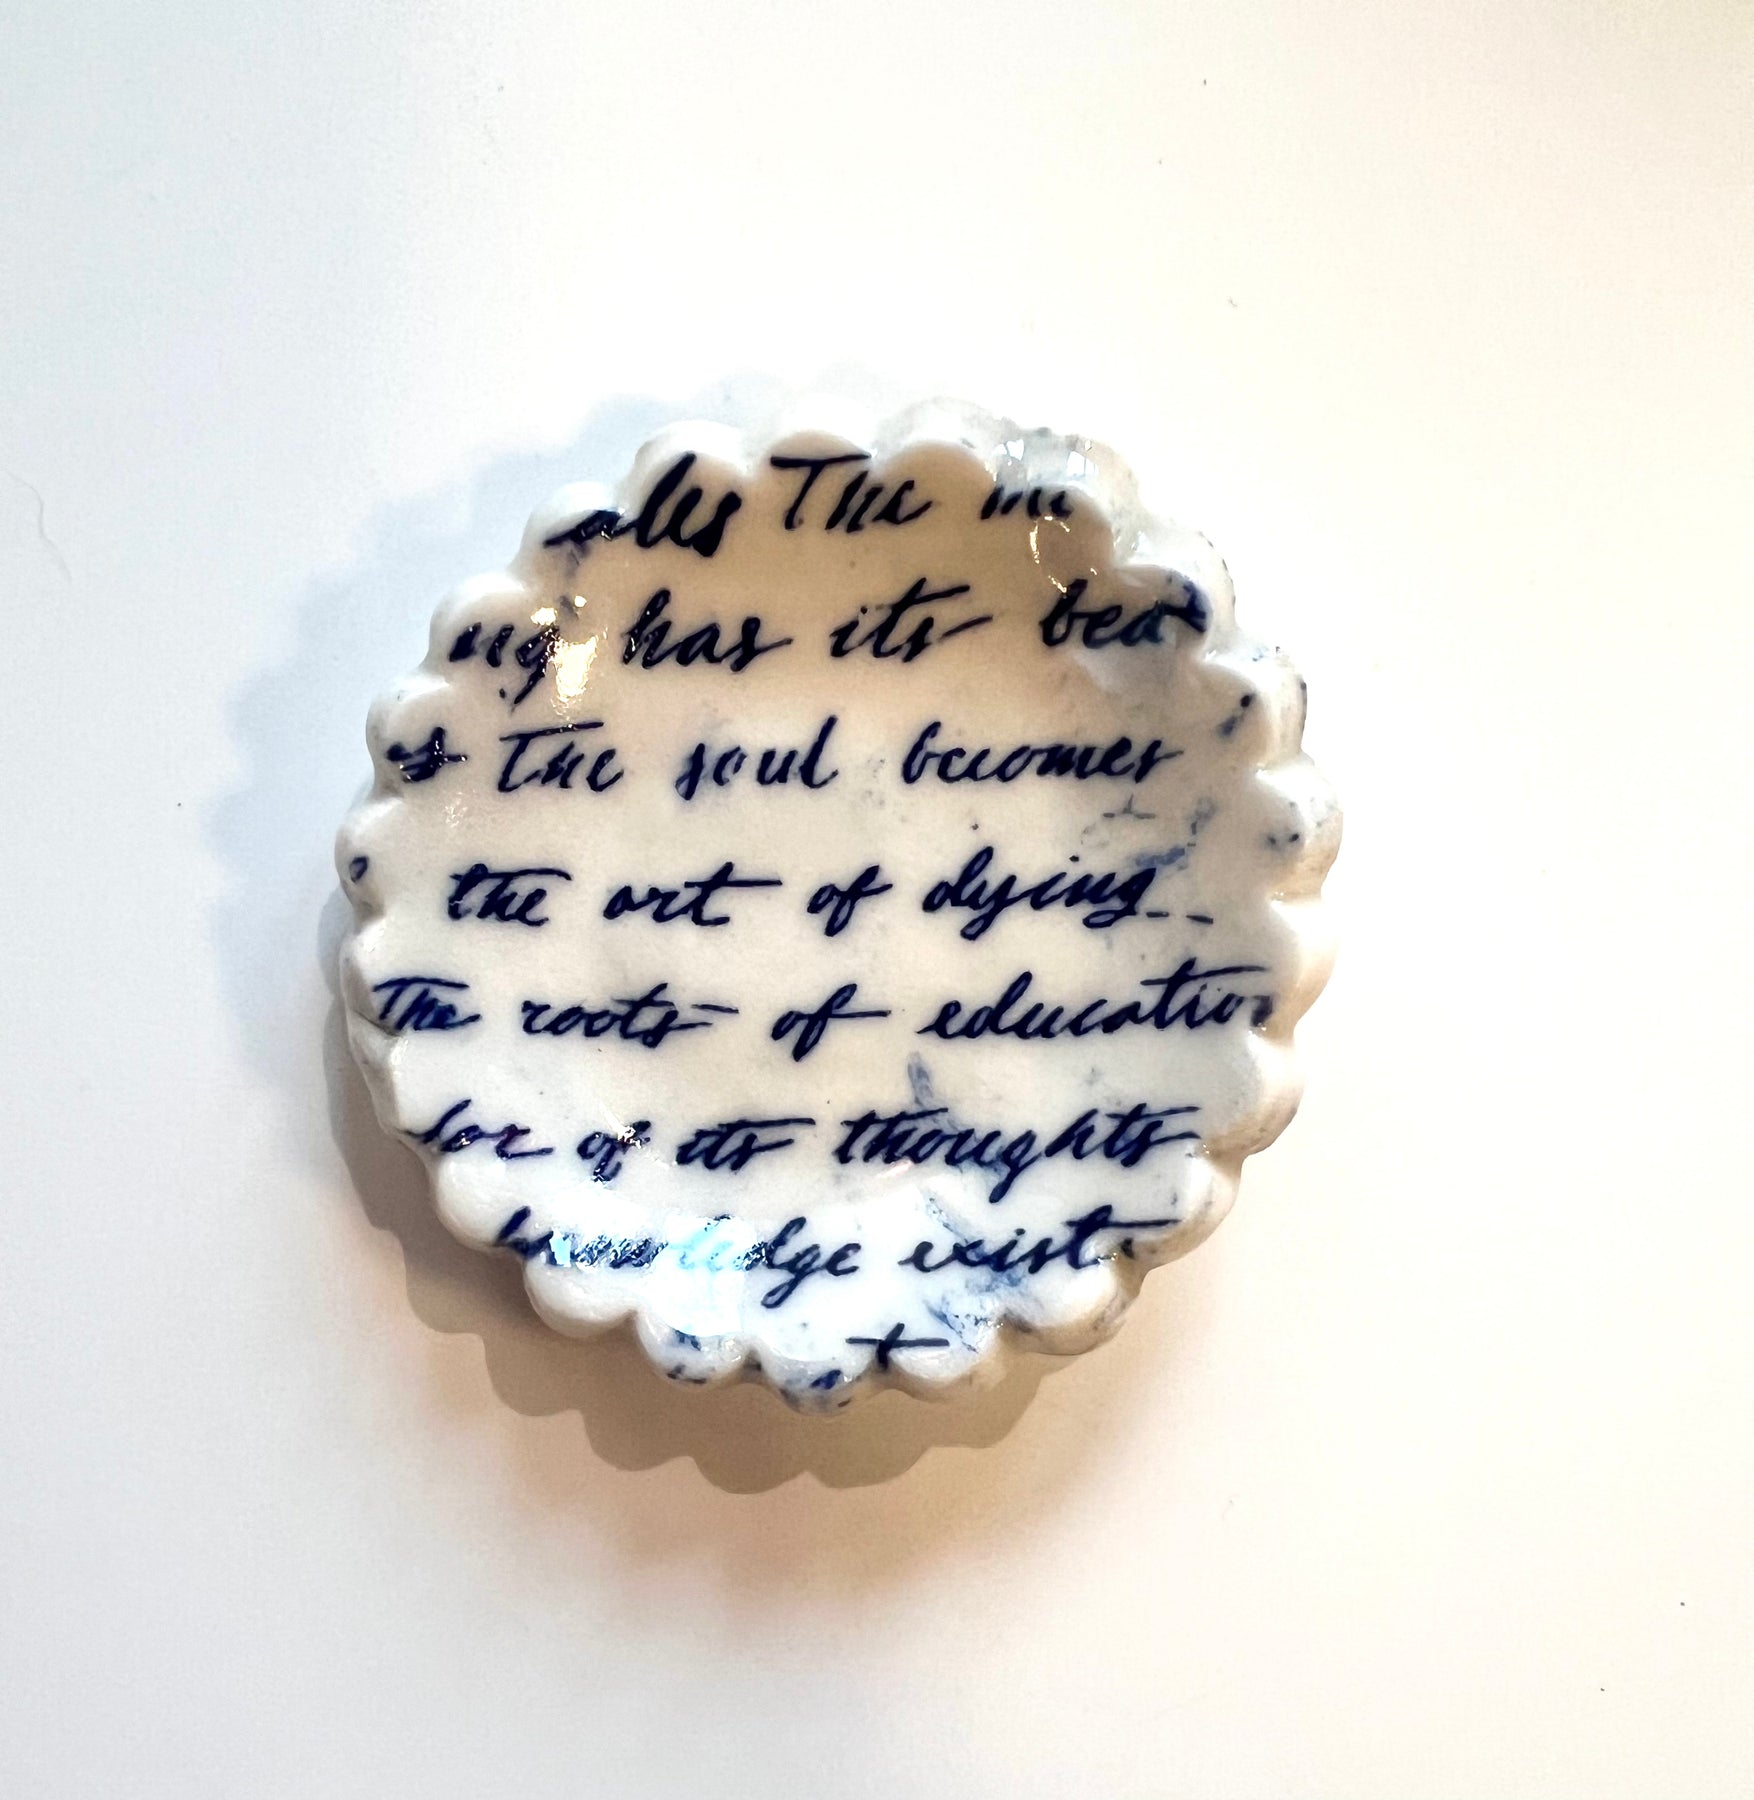 ales The me
ng has its bea
es the soul becomes
the art of dying--
The roots of education
lor of its thoughts
knowledge exists
t